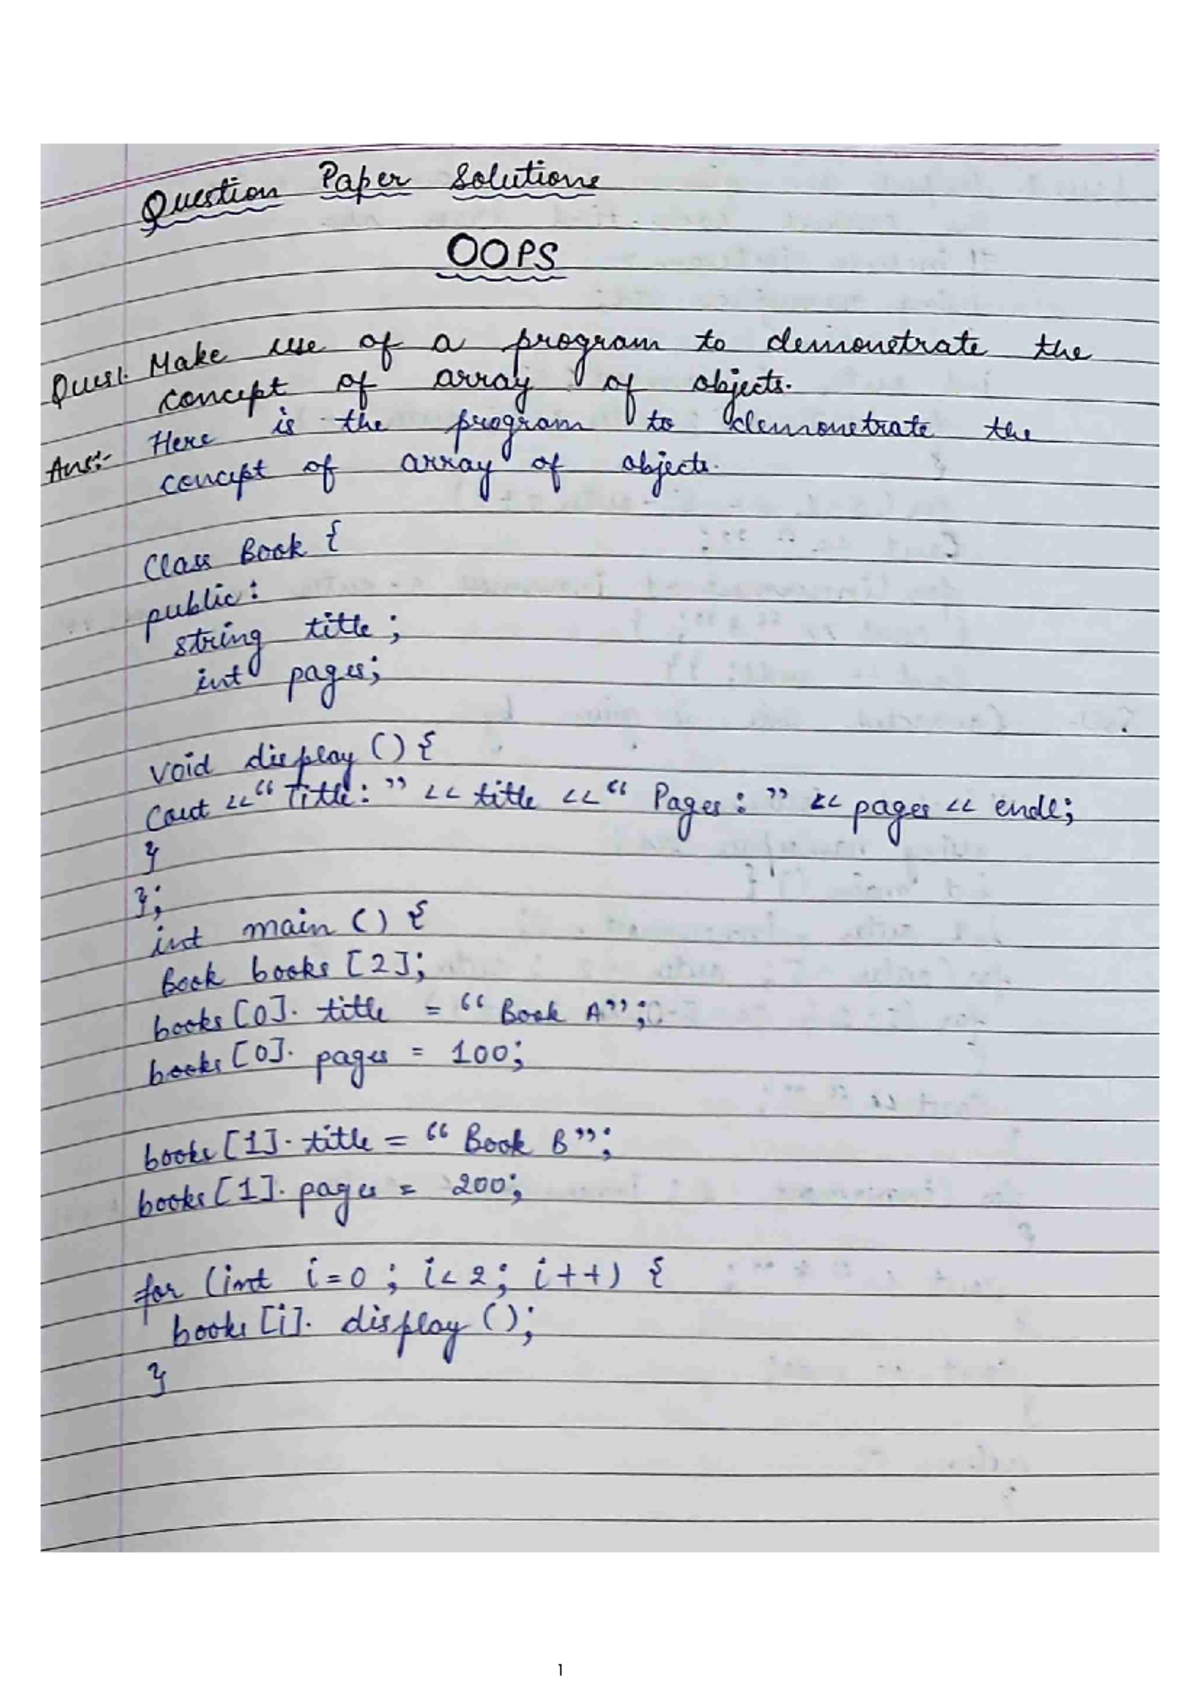 Question Paper Solutions
OOPS
Ques1. Make use of a program to demonstrate the
concept of array of objects.
Ans:- Here is the program to demonstrate the
concept of array of objects.
Class Book {
public:
string title;
int pages;
void display () {
Cout << “Title: ” << title << “ Pages: ” << pages << endl;
}
};
int main () {
Book books [2];
books [0]. title = “ Book A”;
books [0]. pages = 100;
books [1]. title = “ Book B”;
books [1]. pages = 200;
for (int i=0 ; i<2; i++) {
books [i]. display ();
}
1